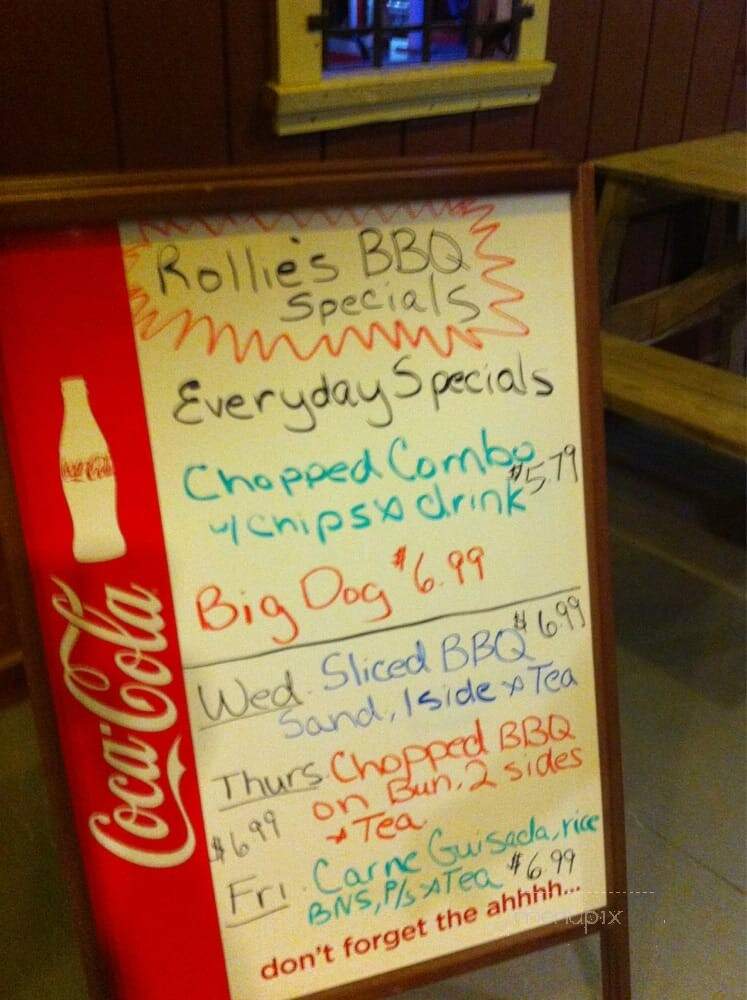 Rollie's BBQ
Specials
Everyday Specials
Chopped Combo
w/ chips & drink $5.79
Big Dog $6.99
Wed. Sliced BBQ $6.99
Sand, 1 side & Tea
Thurs. Chopped BBQ
on Bun, 2 sides
$6.99 & Tea
Fri. Carne Guisada, rice
BNS, P/s & Tea $6.99
don't forget the ahhhh...
Coca-Cola
menupix